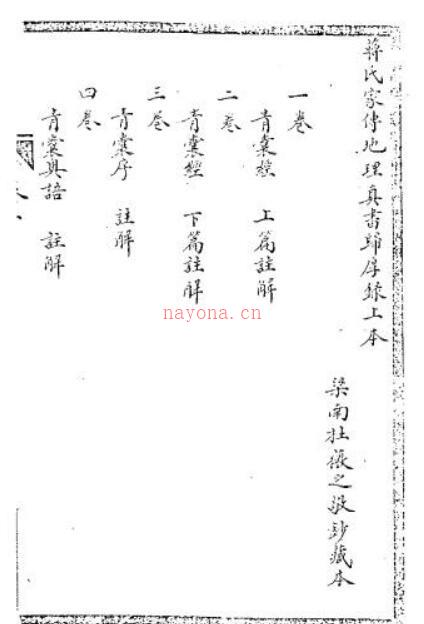 蔣氏家傳地理真書歸厚錄上本
梁南張之敬鈔藏本
一巻
青囊經 上篇註解
二巻
青囊經 下篇註解
三巻
青囊序 註解
四巻
青囊奥語 註解
nayona.cn